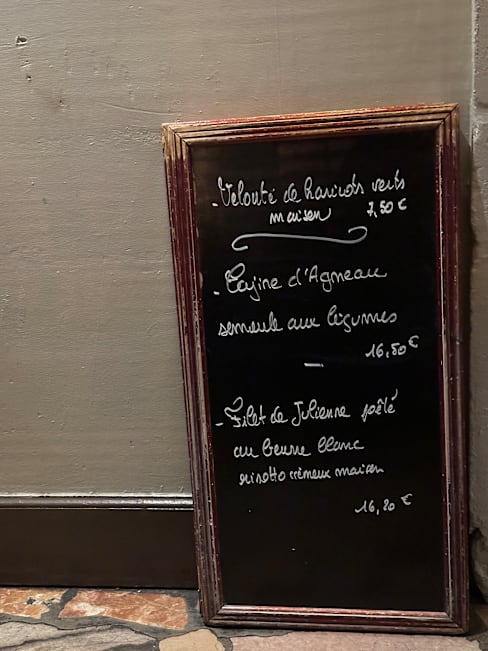 - Velouté de haricots verts
maison 7,50 €
- Tajine d'Agneau
semoule aux légumes
16,50 €
- Filet de Julienne poêlé
au beurre blanc
risotto crémeux maison
16,20 €